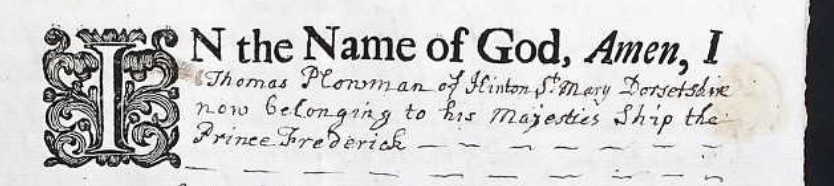 IN the Name of God, Amen, I
Thomas Plowman of Hinton St. Mary Dorsetshire
now belonging to his Majesties Ship the
Prince Frederick